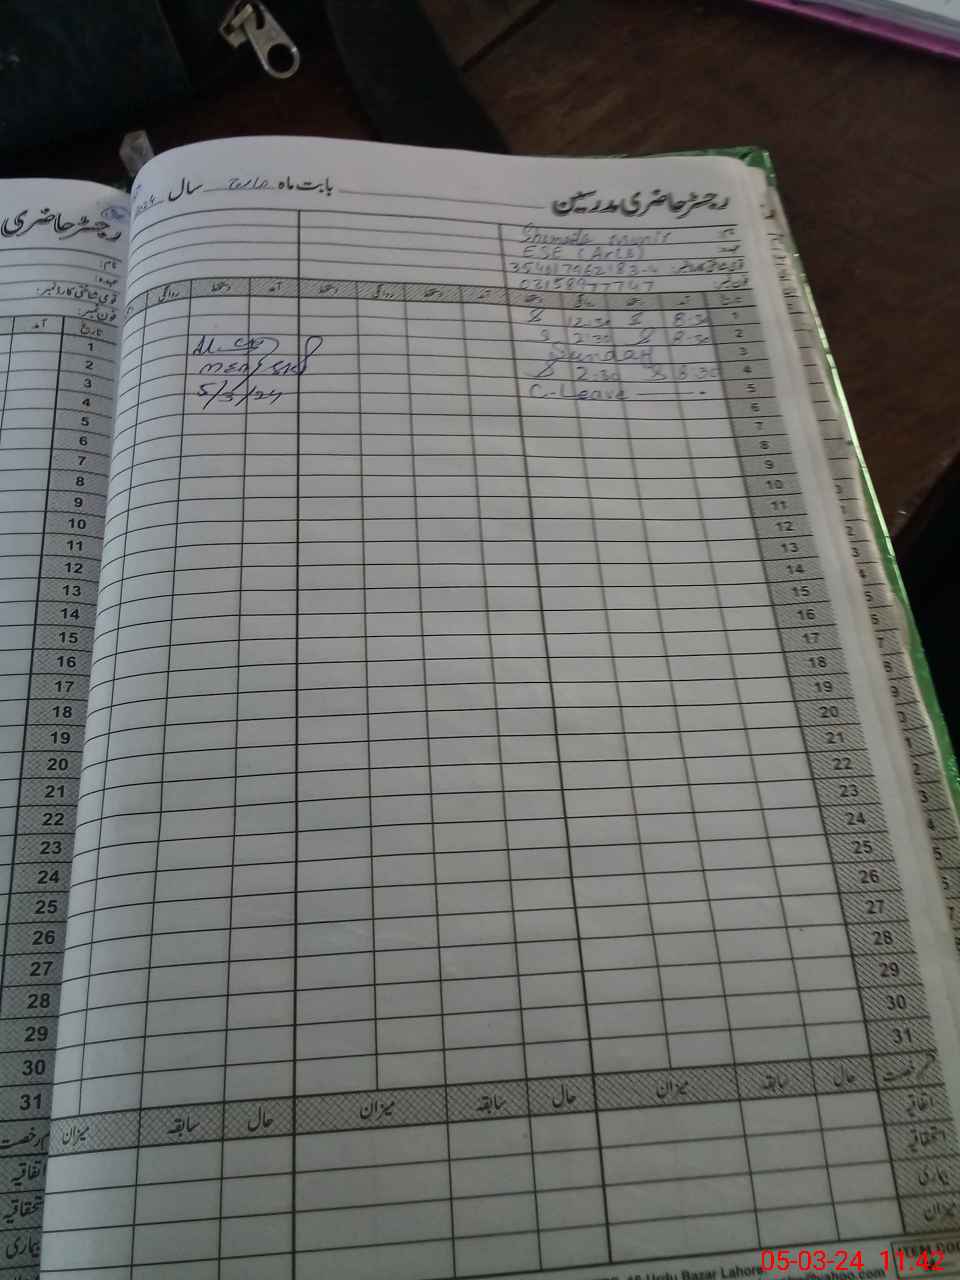 رجسٹر حاضری مدرسین بابت ماہ مارچ سال
نام:
ESE (Arts)
قومی شناختی کارڈ نمبر:
فون نمبر: 03158977747
تاریخ آمد دستخط روانگی دستخط آمد دستخط روانگی دستخط آمد دستخط روانگی
1 8:30 12:30
2 8:30 2:30
3 Sunday
4 8:30 2:30
5 C-Leave
5/3/24
6
7
8
9
10
11
12
13
14
15
16
17
18
19
20
21
22
23
24
25
26
27
28
29
30
31
حال سابقہ میزان حال سابقہ میزان حال سابقہ میزان
اتفاقیہ
استحقاقیہ
بیماری
میزان
Urdu Bazar Lahore
رجسٹر حاضری
نام:
عہدہ:
قومی شناختی کارڈ نمبر:
فون نمبر:
تاریخ آمد
1
2
3
4
5
6
7
8
9
10
11
12
13
14
15
16
17
18
19
20
21
22
23
24
25
26
27
28
29
30
31
اتفاقیہ
استحقاقیہ
بیماری
05-03-24 11:42